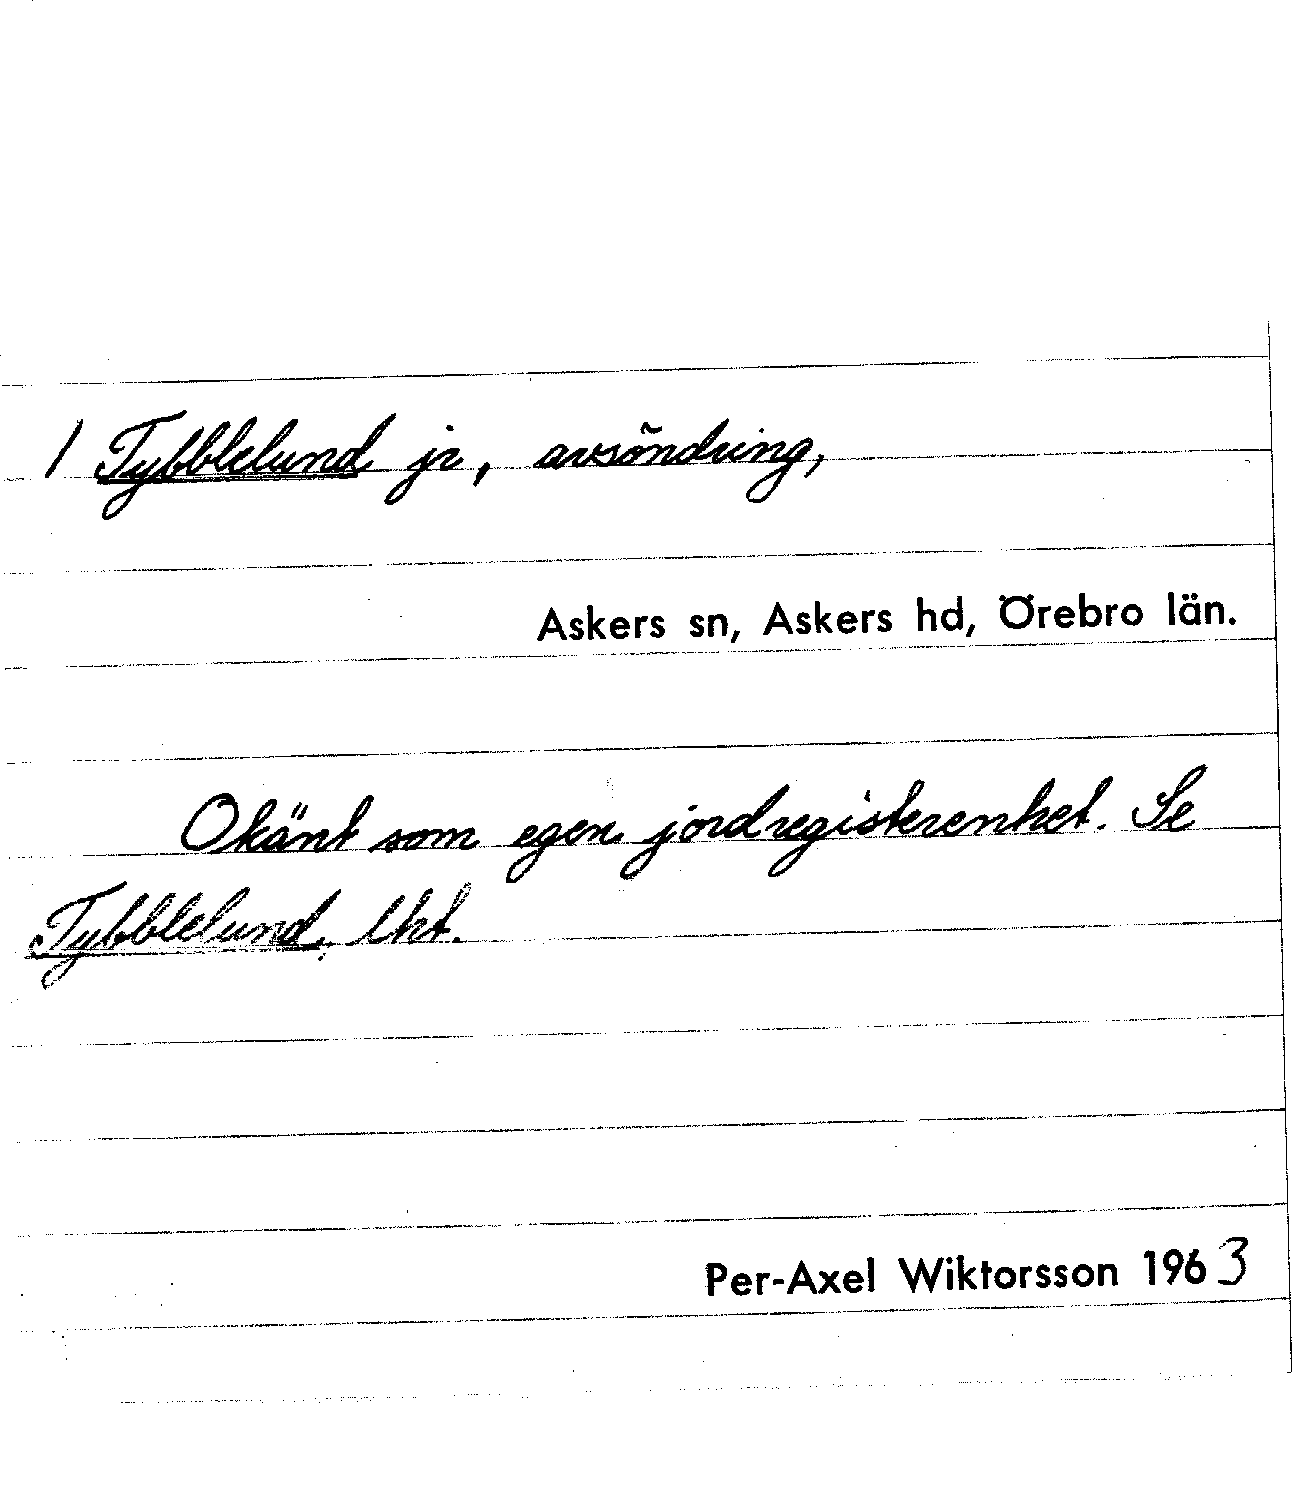 / Tybblelund jr, avsöndring,
Askers sn, Askers hd, Örebro län.
Okänt som egen jordregisterenhet. Se
Tybblelund, lht.
Per-Axel Wiktorsson 1963